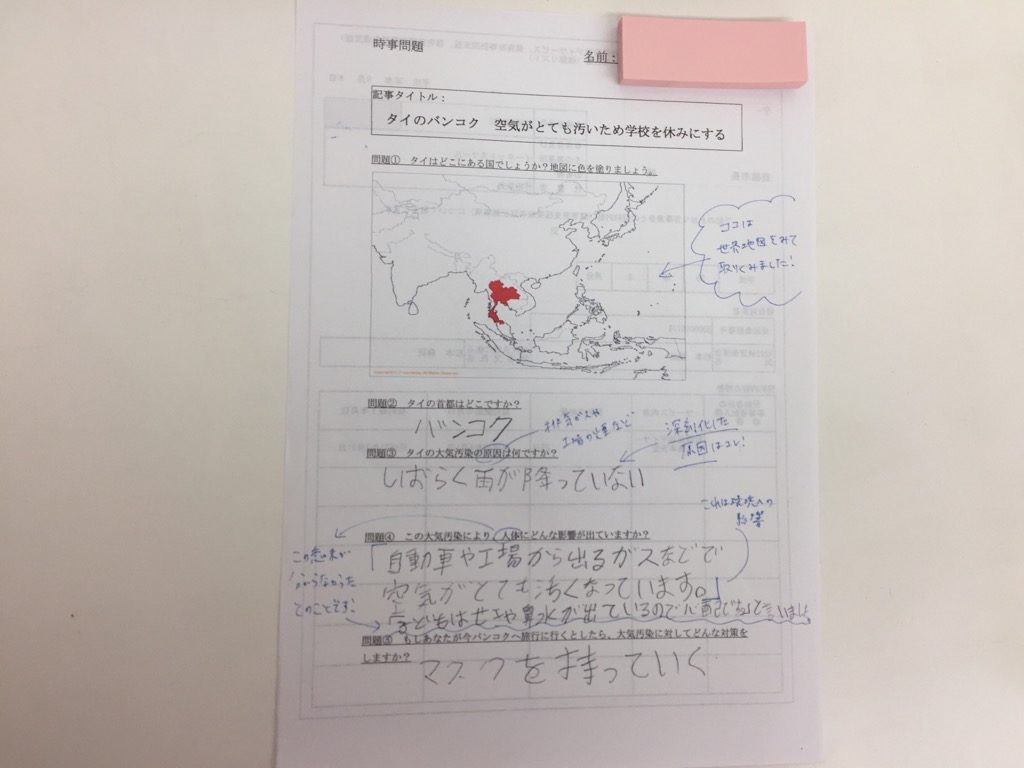 時事問題
名前：
記事タイトル：
タイのバンコク 空気がとても汚いため学校を休みにする
問題① タイはどこにある国でしょうか？地図に色を塗りましょう。
ココは
世界地図をみて
取りくみました！
問題② タイの首都はどこですか？
バンコク
排気ガスや
工場の煙など
深刻化した
原因はコレ！
問題③ タイの大気汚染の原因は何ですか？
しばらく雨が降っていない
これは環境への
影響
問題④ この大気汚染により、人体にどんな影響が出ていますか？
この意味が
とのことです！
「自動車や工場から出るガスなどで
空気がとても汚くなっています。」
子どもはせきや鼻水が出ているので心配
問題⑤ もしあなたが今バンコクへ旅行に行くとしたら、大気汚染に対してどんな対策を
しますか？
マスクを持っていく